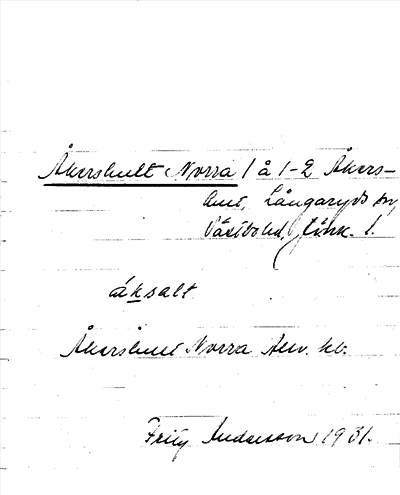 Åkershult Norra 1 å 1-2 Åkers-
hult, Långaryds sn,
Västbo hd, Jönk. l.
áksalt
Åkershult Norra hkb.
Fritz Andersson 1931.